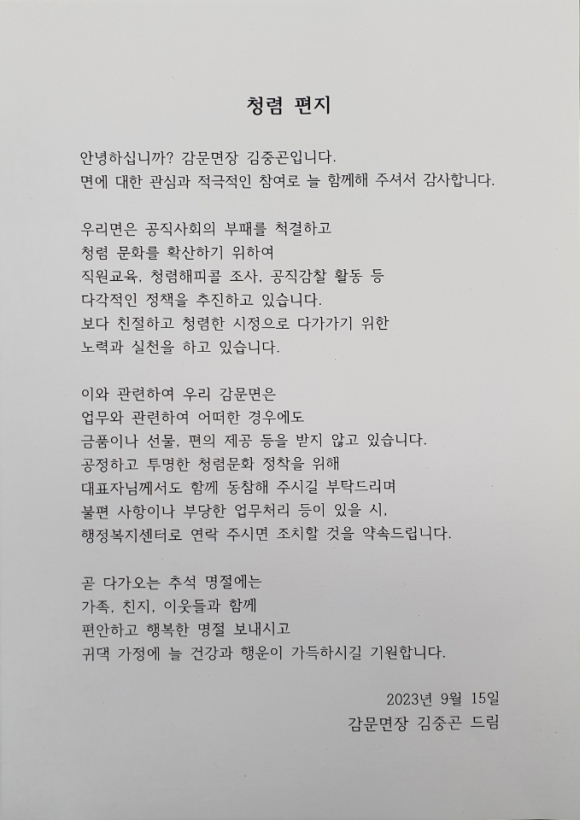 청렴 편지
안녕하십니까? 감문면장 김중곤입니다.
면에 대한 관심과 적극적인 참여로 늘 함께해 주셔서 감사합니다.
우리면은 공직사회의 부패를 척결하고
청렴 문화를 확산하기 위하여
직원교육, 청렴해피콜 조사, 공직감찰 활동 등
다각적인 정책을 추진하고 있습니다.
보다 친절하고 청렴한 시정으로 다가가기 위한
노력과 실천을 하고 있습니다.
이와 관련하여 우리 감문면은
업무와 관련하여 어떠한 경우에도
금품이나 선물, 편의 제공 등을 받지 않고 있습니다.
공정하고 투명한 청렴문화 정착을 위해
대표자님께서도 함께 동참해 주시길 부탁드리며
불편 사항이나 부당한 업무처리 등이 있을 시,
행정복지센터로 연락 주시면 조치할 것을 약속드립니다.
곧 다가오는 추석 명절에는
가족, 친지, 이웃들과 함께
편안하고 행복한 명절 보내시고
귀댁 가정에 늘 건강과 행운이 가득하시길 기원합니다.
2023년 9월 15일
감문면장 김중곤 드림